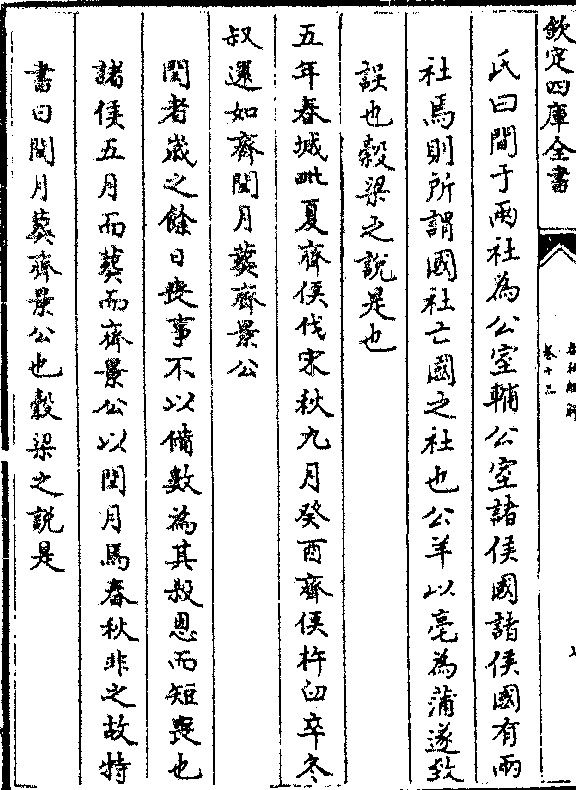 欽定四庫全書
春秋經解
卷十二
氏曰間于兩社為公室輔公室諸侯國諸侯國有兩
社焉則所謂國社亡國之社也公羊以亳為蒲遂致
誤也穀梁之說是也
五年春城毗夏齊侯伐宋秋九月癸酉齊侯杵臼卒冬
叔還如齊閏月葬齊景公
閏者歲之餘日喪事不以備數為其殺恩而短喪也
諸侯五月而葬而齊景公以閏月焉春秋非之故特
書曰閏月葬齊景公也穀梁之說是